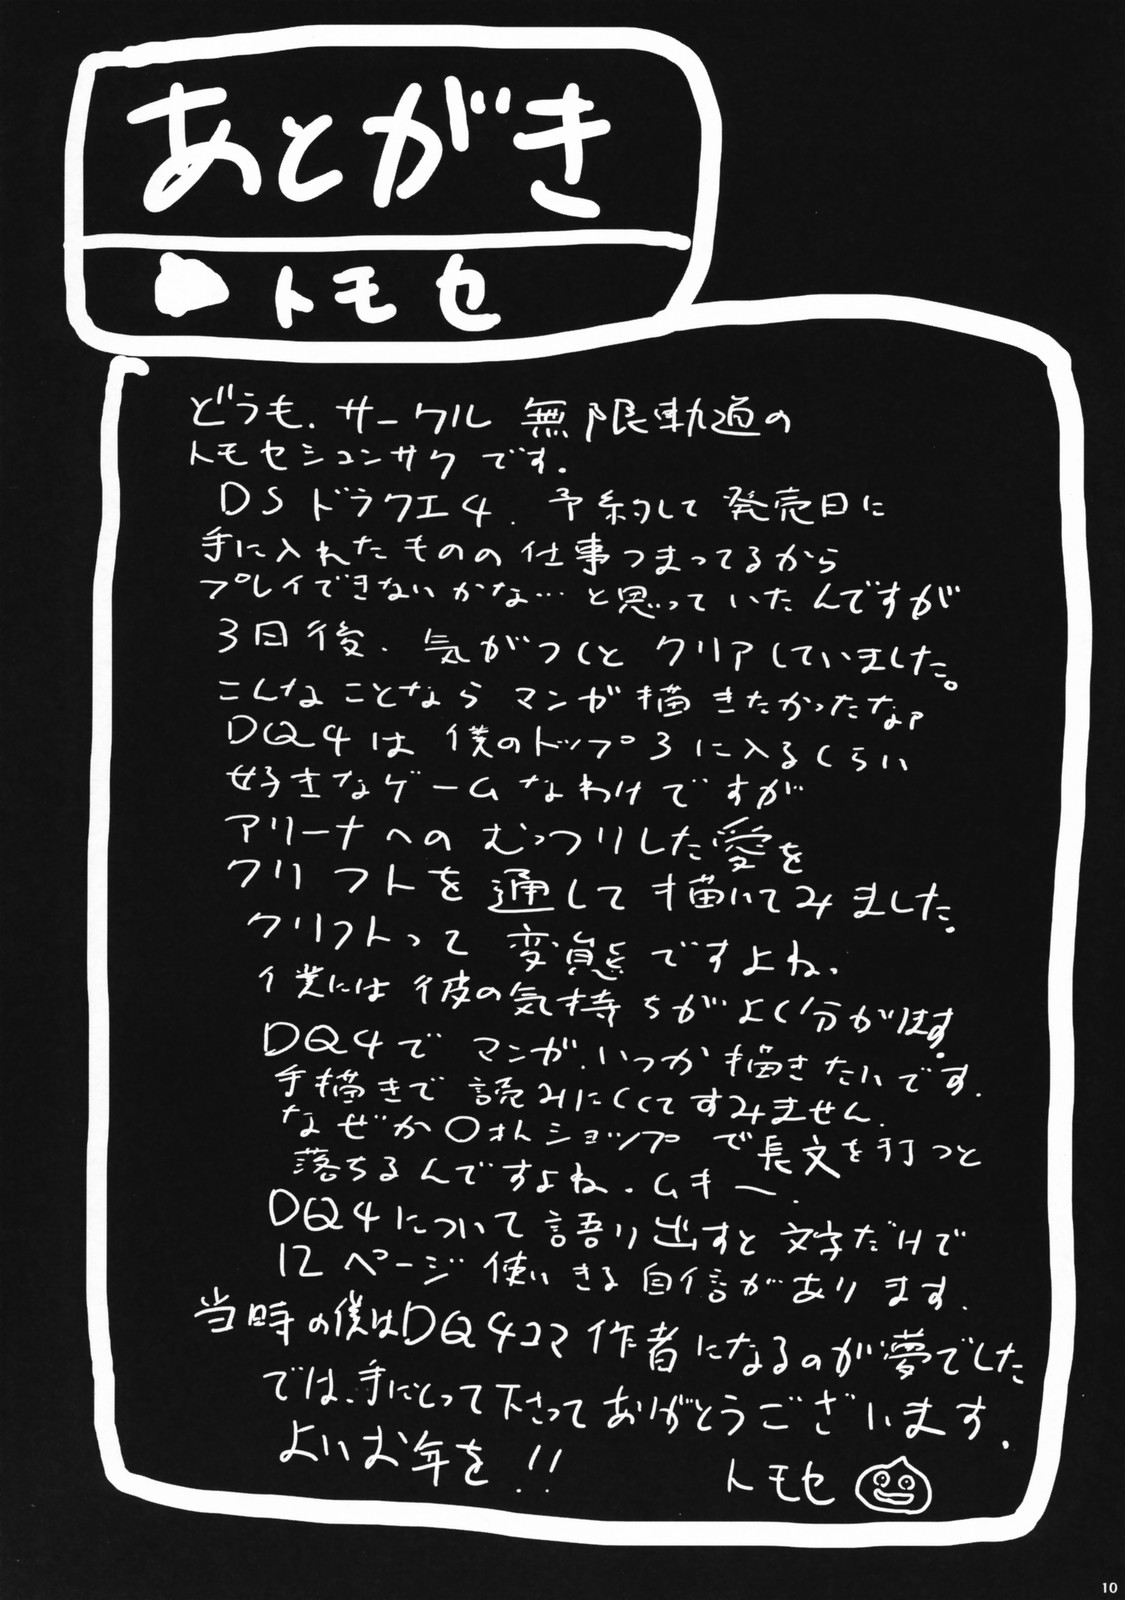 あとがき
トモセ
どうも、サークル 無限軌道の
トモセシュンサクです。
DSドラクエ4、予約して発売日に
手に入れたものの仕事つまってるから
プレイできないかな…と思っていたんですが
3日後、気がつくとクリアしていました。
こんなことなら マンガ描きたかったなァ
DQ4は僕のトップ3に入るくらい
好きなゲームなわけですが
アリーナへのむっつりした愛を
クリフトを通して描いてみました。
クリフトって変態ですよね。
僕には彼の気持ちがよく分かります。
DQ4でマンガ、いつか描きたいです。
手描きで読みにくくてすみません。
なぜか〇オトショップで長文を打つと
落ちるんですよね。ムキー。
DQ4について語り出すと文字だけで
12ページ使いきる自信があります。
当時の僕はDQ4コマ作者になるのが夢でした
では、手にとって下さってありがとうございます。
よいお年を!!
トモセ
10